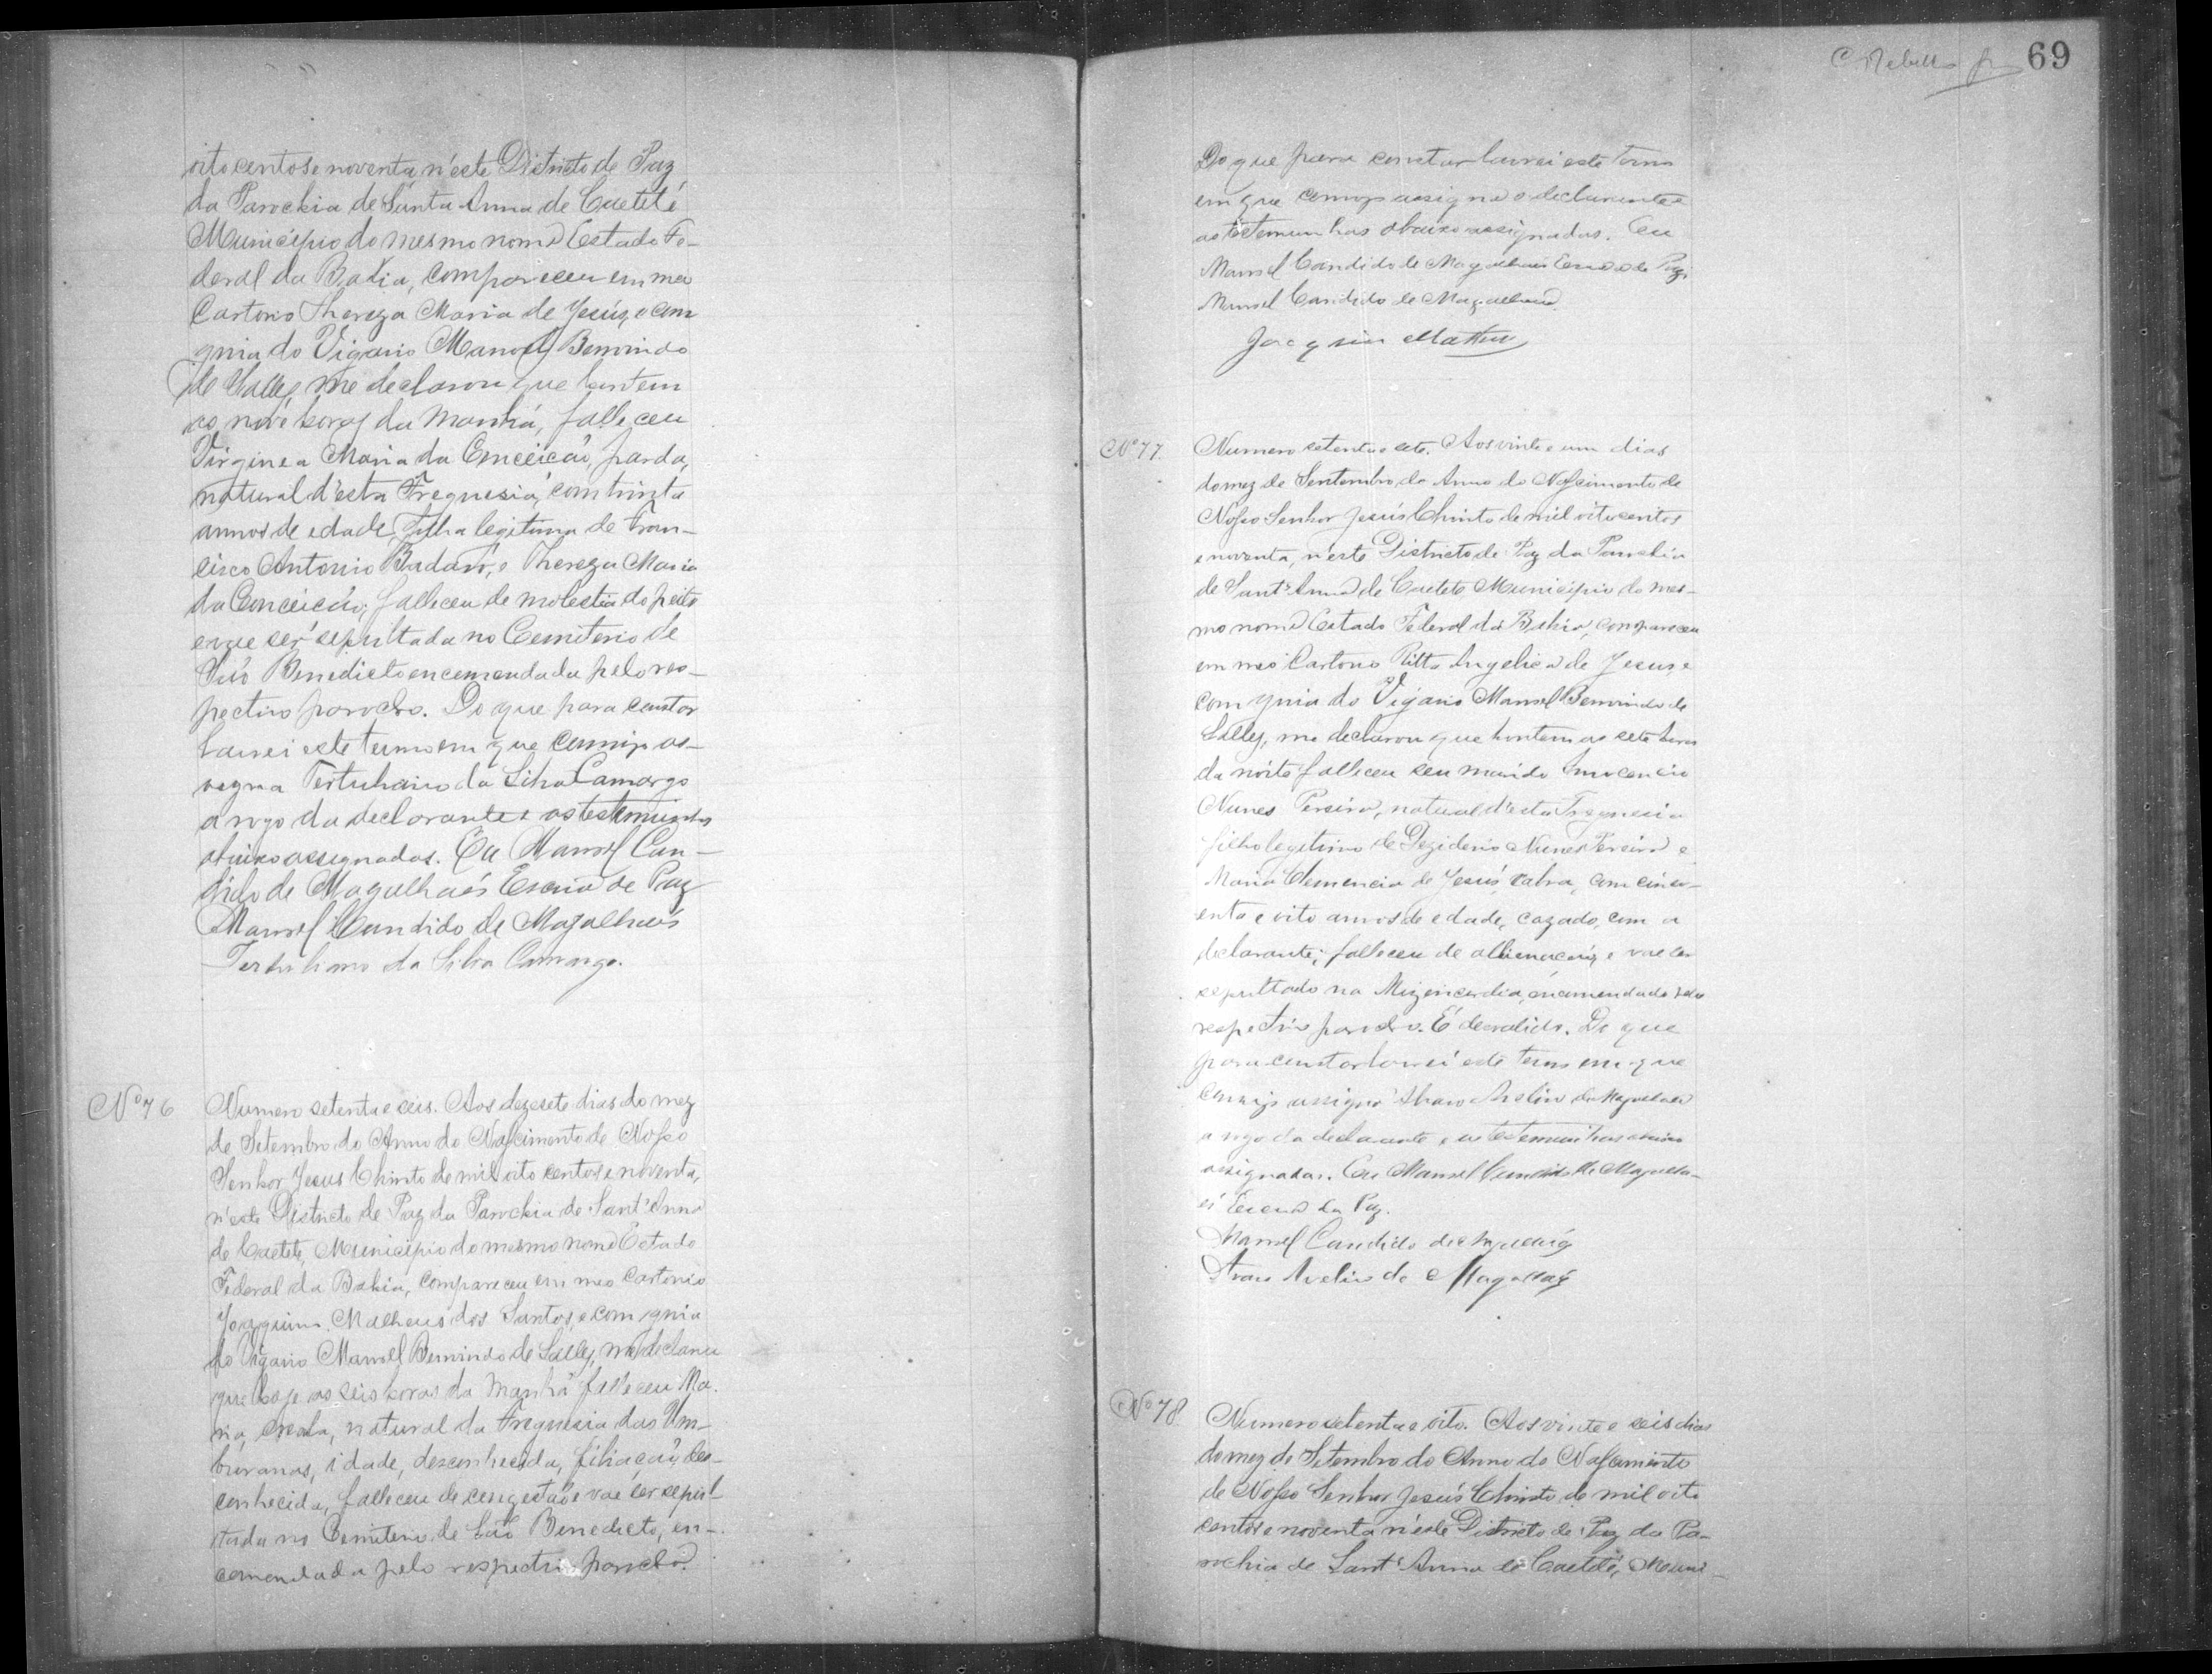 oitocentos e noventa, n'este Districto de Paz
da Parochia de Santa Anna de Caetité
Municipio do mesmo nome Estado Fe-
deral da Bahia, compareceu em meo
Cartorio Thereza Maria de Jesús, e com
guia do Vigario Manoel Bemvindo
de Salles, me declarou que hontem
as nove horas da manhá, falleceu
Virginea Maria da Conceicaó, parda,
natural d'esta Freguesia, com trinta
annos de edade, Filha legitima de Fran-
cisco Antonio Badaró, e Thereza Maria
da Conceicáo; falleceu de molestia do peito
e vae ser sepultada no Cemiterio de
Saó Benedicto encomendada pelo res-
pectivo parocho. Do que para constar
lavrei este termo em que comigo as-
signa Tertuliano da Silva Camargo
a rogo da declarante e as testemunhas
abaixo assignadas. Eu Manoel Can-
dido de Magalhaés Escrivã de Paz
Manoel Candido de Magalhaés
Tertuliano da Silva Camargo.
Nº 76
Numero setenta e seis. Aos dezesete dias do mez
de Setembro do Anno do Nascimento de Nosso
Senhor Jesus Christo de mil oito centos e noventa,
n'este Districto de Paz da Parochia de Sant'Anna
de Caetité, Municipio do mesmo nome Estado
Federal da Bahia, compareceu em meo Cartorio
Joaquim Matheus dos Santos, e com guia
do Vigario Manoel Bemvindo de Salles, me declarou
que hoje as seis horas da manhã falleceu Ma-
ria, natural da Freguesia das Um-
buranas, idade, desconhecida, filiaçaó des-
conhecida, falleceu de congestaó e vae ser sepul-
tada no Cemiterio de Saó Benedicto, en-
comendada pelo respectivo parocho.
69
Do que para constar lavrei este termo
em que comigo assigna o declarante e
as testemunhas abaixo assignadas. Eu
Manoel Candido de Magalhaes Escrivã de Paz
Manoel Candido de Magalhaes
Joaquim Matheus
Nº 77
Numero setenta e sete. Aos vinte e um dias
do mez de Sentembro do Anno do Nascimento de
Nosso Senhor Jesús Christo de mil oitocentos
e noventa, n'este Districto de Paz da Parochia
de Sant'Anna de Caetité Municipio do mes-
mo nome Estado Federal da Bahia, compareceu
em meo Cartorio Ritta Angelica de Jesus, e
com guia do Vigario Manoel Bemvindo de
Salles, me declarou que hontem as sete horas
da noite falleceu seu marido Innocencio
Nunes Pereira, natural d'esta Freguesia
filho legitimo de Deziderio Nunes Pereira e
Maria Clemencia de Jesús, cabra, com cinco-
enta e oito annos de edade, cazado, com a
declarante; falleceu de e vae ser
sepultado na Mizericordia, encomendado pelo
respectivo parocho. É desvalido. Do que
para constar lavrei este termo em que
comigo assigna Avelino de Magalhaes
a rogo da declarante e as testemunhas abaixo
assignadas. Eu Manoel Candido de Magalha-
es Escrivã da Paz.
Manoel Candido de Magalhaes
Avelino de Magalhaẽs
Nº 78
Numero setenta e oito. Aos vinte e seis dias
do mez de Setembro do Anno do Nascimento
de Nosso Senhor Jesús Christo de mil oito
centos e noventa n'este Districto de Paz da Pa-
rochia de Sant'Anna de Caetité, Muni-